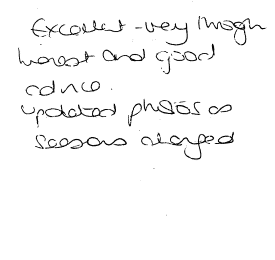 Excellent - very through
honest and good
advice.
updated photos as
seasons changed